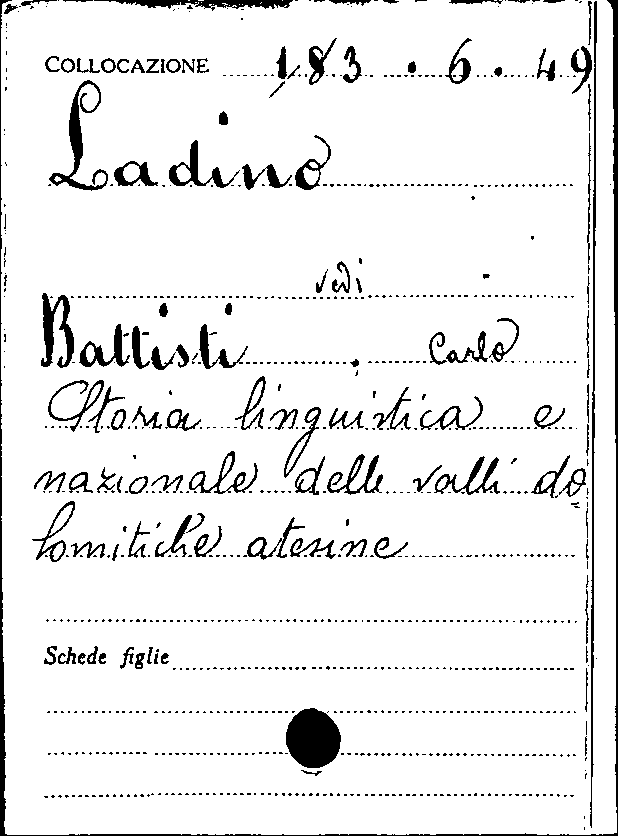 COLLOCAZIONE 183.6.49
Ladino
vedi
Battisti, Carlo
Storia linguistica e
nazionale delle valli do
lomitiche atesine
Schede figlie